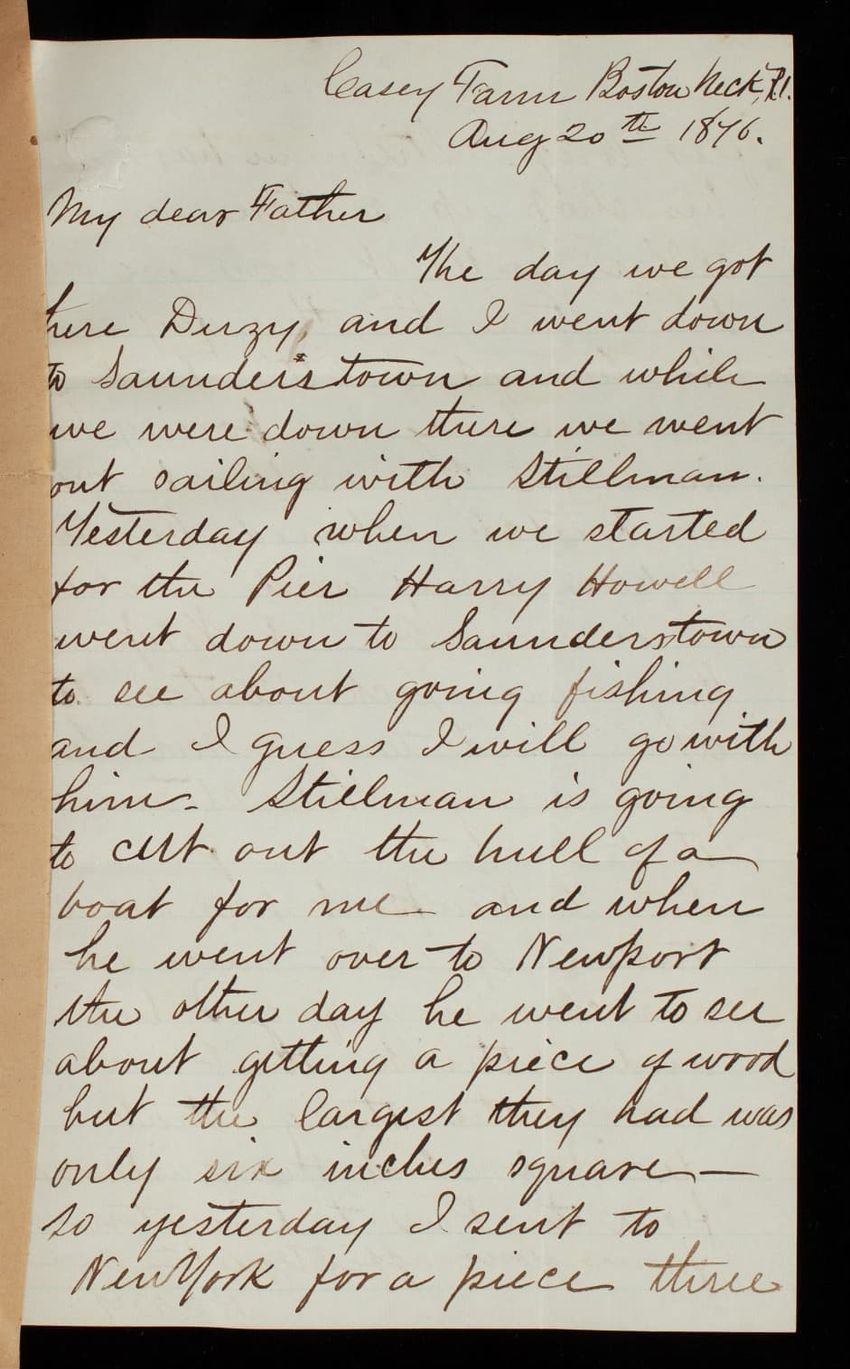 Casey Farm Boston Neck, R.I.
Aug 20th 1876.
My dear Father
The day we got
here Duzy, and I went down
to Saunderstown and while
we were down there we went
out sailing with Stillman.
Yesterday when we started
for the Pier Harry Howell
went down to Saunderstown
to see about going fishing
and I guess I will go with
him. Stillman is going
to cut out the hull of a
boat for me and when
he went over to Newport
the other day he went to see
about getting a piece of wood
but the largest they had was
only six inches square —
so yesterday I sent to
New York for a piece three